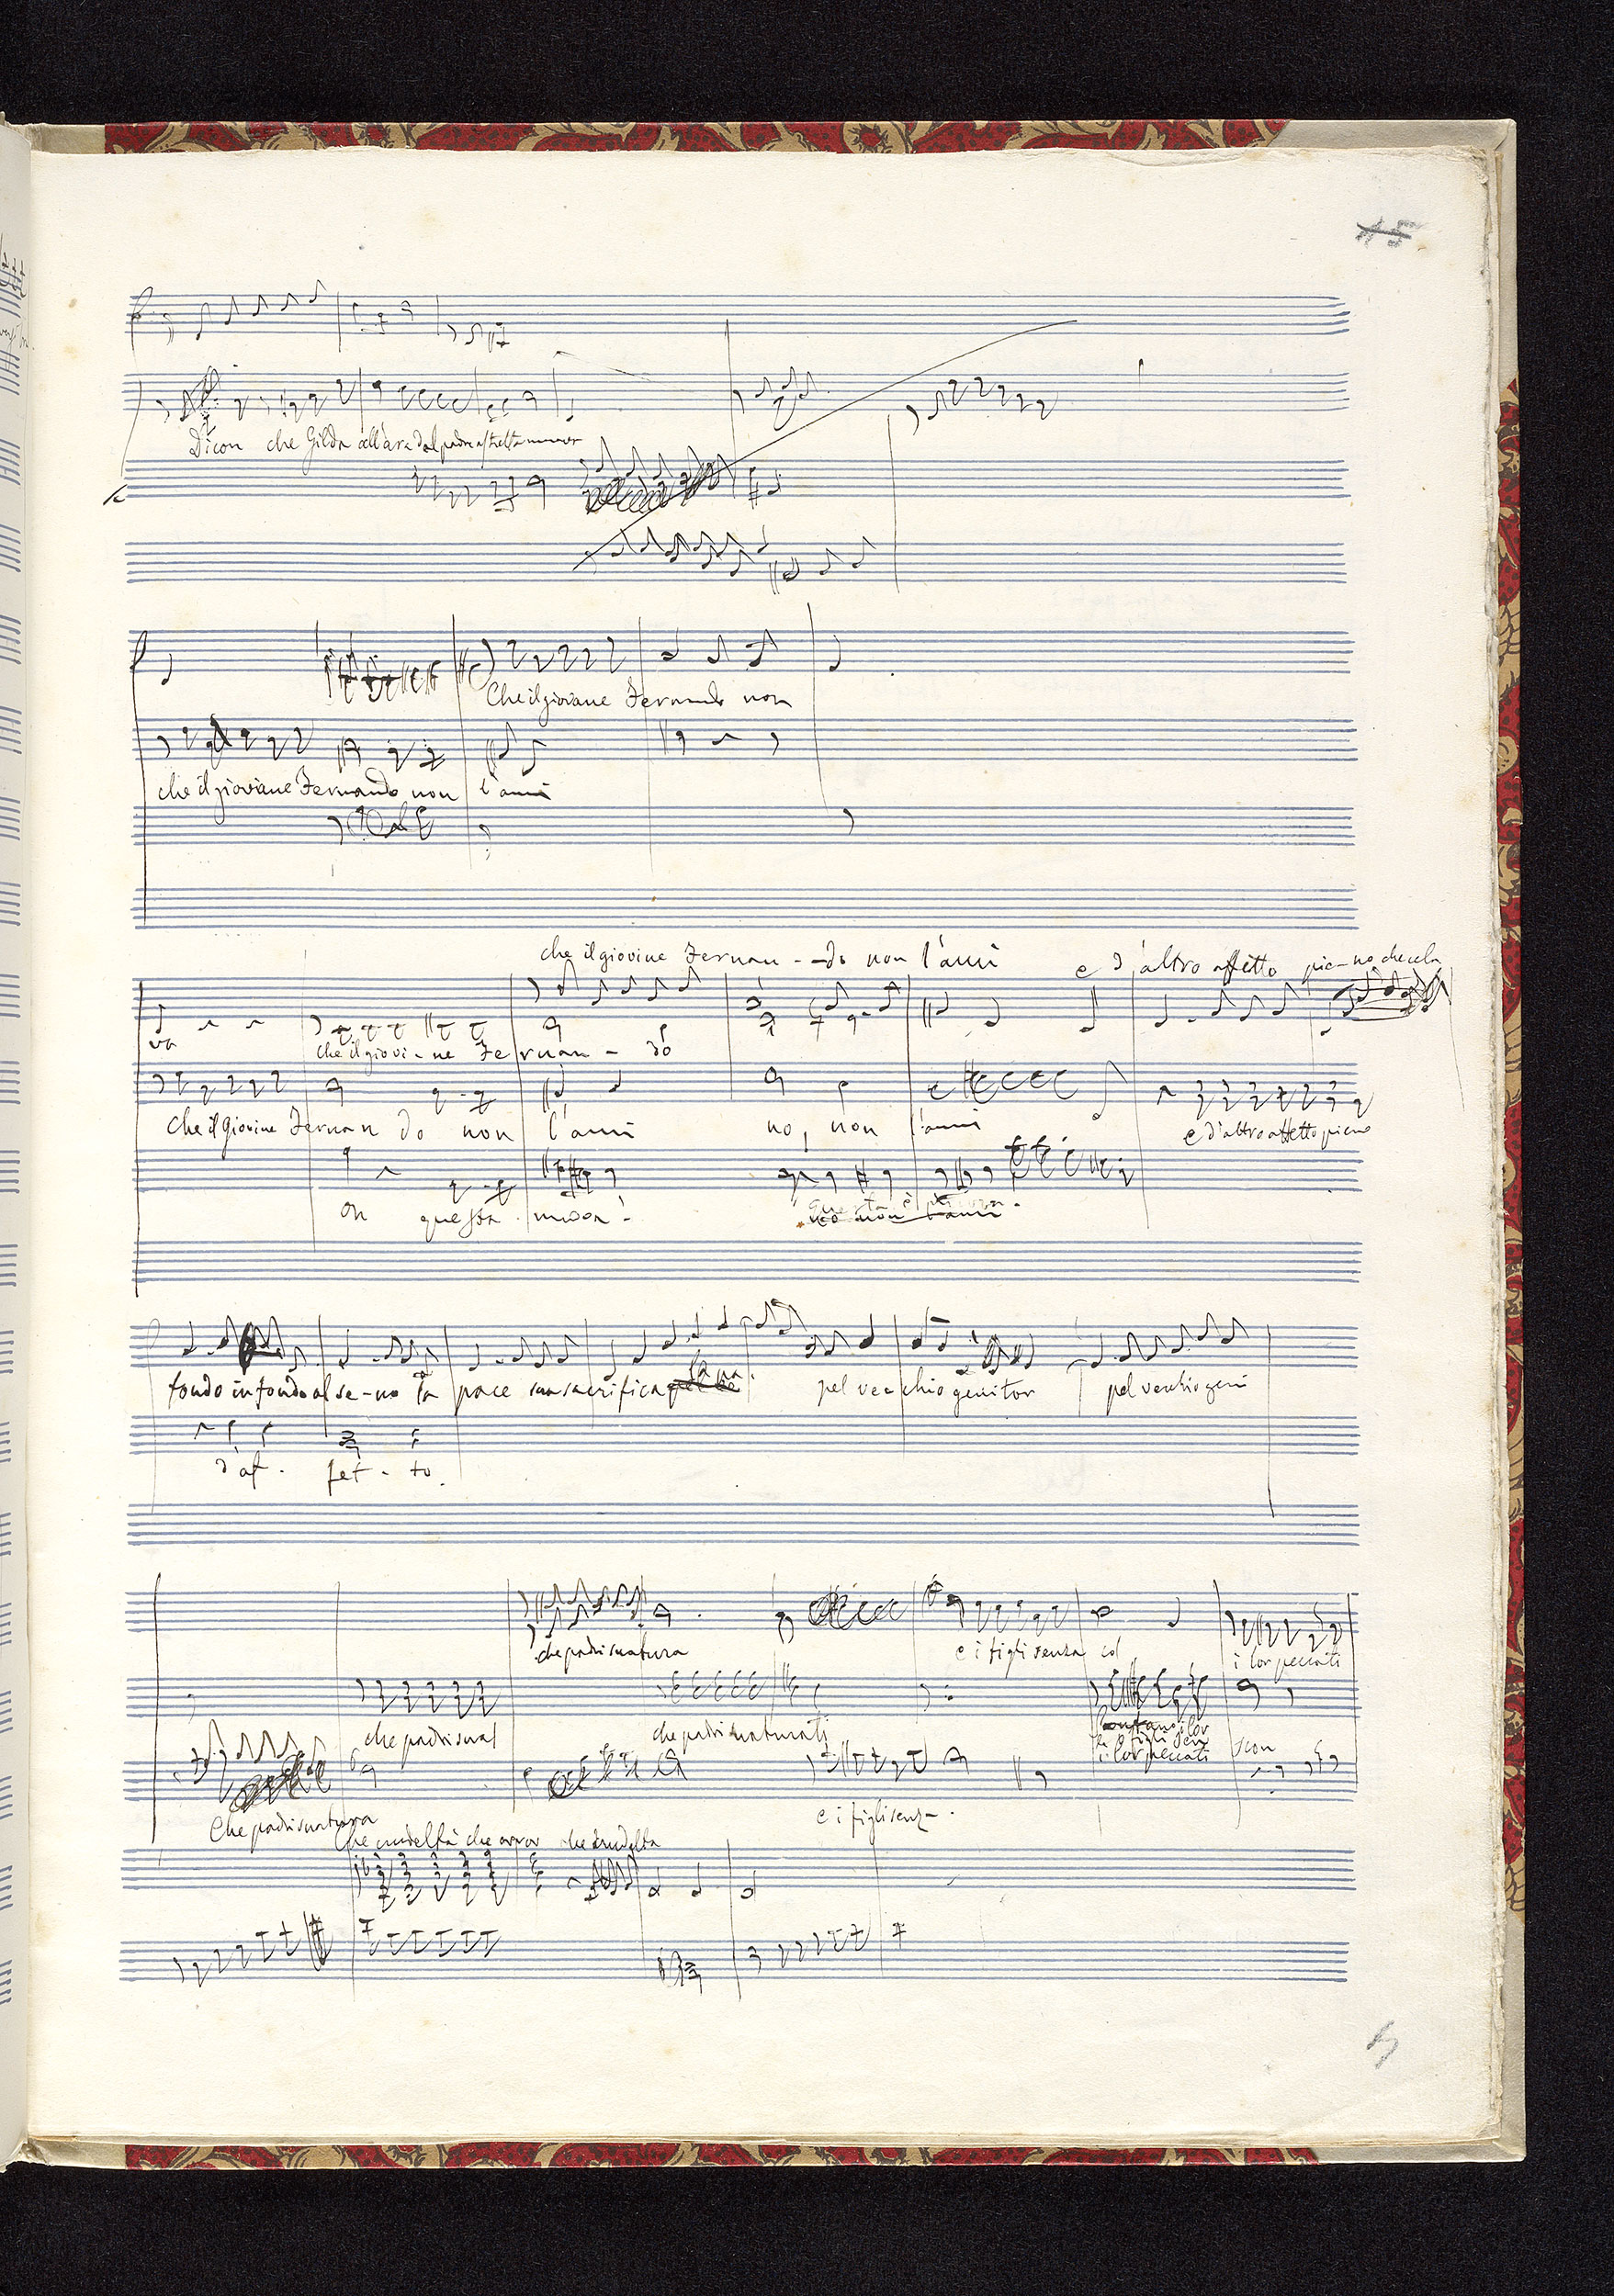 15
Dicon che Gilda all'ara dal padre astretta muover
Che il giovane Fernando non
che il giovine Fernando non l'ami
che il giovine Fernan - - do non l'ami e d'altro affetto pie - no che cela
va che il giovi - ne Fe rnan - do
che il Giovine Fernan do non l'ami no, non l'ami e d'altro affetto pieno
questa
no non l'ami
fondo in fondo al se - no la pace sua sacrifica pel vecchio genitor pel vecchio geni
d'af - fet - to.
che padri snatura e i figli senza col i lor peccati
che padri snat che padri snaturati
i lor peccati scon
Che padri snatura e i figli senza
Che crudeltà che orror che crudeltà